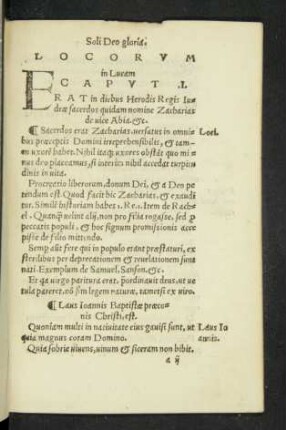 Soli Deo gloria.
LOCORVM
in Lucam
CAPVT. I.
ERAT in diebus Herodis Regis Iu-
deæ sacerdos quidam nomine Zacharias
de vice Abia.&c.
¶ Sacerdos erat Zacharias.versatus in omnib9 Locl.
præceptis Domini irreprehensibilis, & ta-
men uxorē habet. Nihil itaqƺ uxores obstāt quo mi
nus deo placeamus, si interius nihil accedat turpitu
dinis in uita.
Procreatio liberorum, donum Dei, & a Deo pe-
tendum est. Quod facit hic Zacharias, & exaudi-
tur. Similē historiam habes .Re.1. Item de Rach-
el . Quanqƺ uelint alij, non pro filia rogasse, sed p
peccatis populi , & hoc signum promissionis acce-
pisse de filio mittendo.
Semp alit fere qui in populo erant præstaturi, ex
sterilibus per deprecationem & reuelationem sunt
nati. Exemplum de Samuel. Sanson.&c.
Et qƺ virgo paritura erat. pordinauit deus, ut ue
tula pareret. nō sim legem naturæ, tametsi ex uiro.
¶ Laus Ioannis Baptistæ præco-
nis Christi, est.
Quoniam multi in natiuitate eius gauisi sunt, ut Laus Io
quia magnus coram Domino. annis.
Quia sobrie uiuens, uinum & siceram non bibit.
a ij